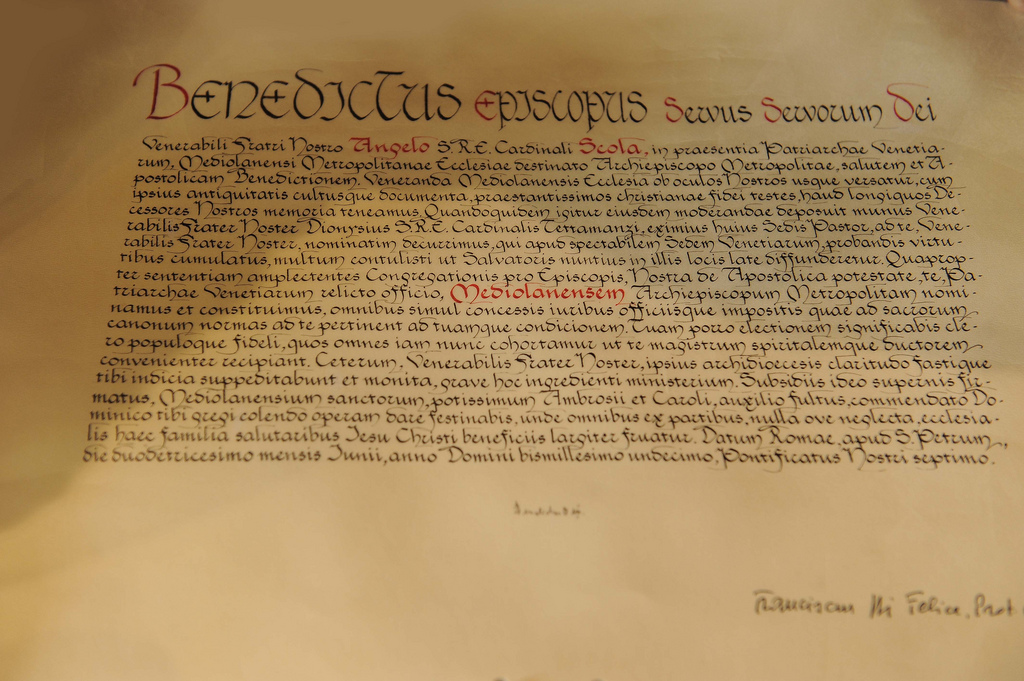 Benedictus Episcopus Servus Servorum Dei
Venerabili Fratri Nostro Angelo S.R.E. Cardinali Scola, in praesentia Patriarchae Venetia-
rum, Mediolanensi Metropolitanae Ecclesiae destinato Archiepiscopo Metropolitae, salutem et A-
postolicam Benedictionem. Veneranda Mediolanensis Ecclesia ob oculos Nostros usque versatur, cum
ipsius antiquitatis cultusque documenta, praestantissimos christianae fidei testes, haud longiquos De-
cessores Nostros memoria teneamus. Quandoquidem igitur eiusdem moderandae deposuit munus Vene-
rabilis Frater Noster Dionysius S.R.E. Cardinalis Tettamanzi, eximius huius Sedis Pastor, ad te, Vene-
rabilis Frater Noster, nominatim decurrimus, qui apud spectabilem Sedem Venetiarum, probandis virtu-
tibus cumulatus, multum contulisti ut Salvatoris nuntius in illis locis late diffunderetur. Quaprop-
ter sententiam amplectentes Congregationis pro Episcopis, Nostra de Apostolica potestate, te, Pa-
triarchae Venetiarum relicto officio, Mediolanensem Archiepiscopum Metropolitam nomi-
namus et constituimus, omnibus simul concessis iuribus officiisque impositis quae ad sacrorum
canonum normas ad te pertinent ad tuamque condicionem. Tuam porro electionem significabis cle-
ro populoque fideli, quos omnes iam nunc cohortamur ut te magistrum spiritalemque ductorem
convenienter recipiant. Ceterum, Venerabilis Frater Noster, ipsius archidioecesis claritudo fastique
tibi indicia suppeditabunt et monita, grave hoc ingredienti ministerium. Subsidiis ideo supernis fir-
matus, Mediolanensium sanctorum, potissimum Ambrosii et Caroli, auxilio fultus, commendato Do-
minico tibi gregi colendo operam dare festinabis, unde omnibus ex partibus, nulla ove neglecta, ecclesia-
lis haec familia salutaribus Iesu Christi beneficiis largiter fruatur. Datum Romae, apud S. Petrum,
die duodetricesimo mensis Iunii, anno Domini bismillesimo undecimo, Pontificatus Nostri septimo.
Franciscus Felice, Prot.